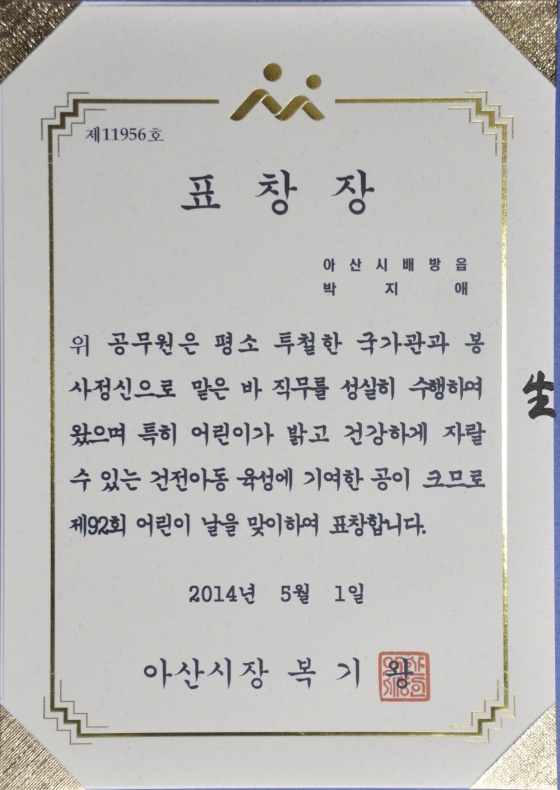 제11956호
표 창 장
아 산 시 배 방 읍
박 지 애
위 공무원은 평소 투철한 국가관과 봉
사정신으로 맡은 바 직무를 성실히 수행하여
왔으며 특히 어린이가 밝고 건강하게 자랄
수 있는 건전아동 육성에 기여한 공이 크므로
제92회 어린이 날을 맞이하여 표창합니다.
2014년 5월 1일
아산시장 복 기 왕
生